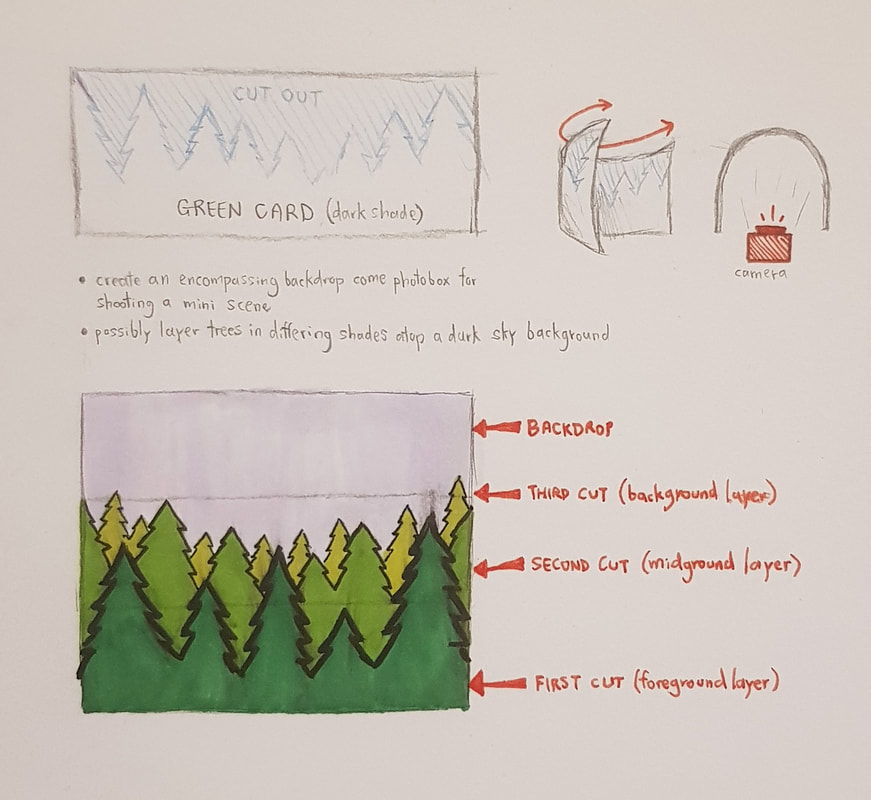 CUT OUT
GREEN CARD (dark shade)
camera
• create an encompassing backdrop come photobox for
shooting a mini scene
• possibly layer trees in differing shades atop a dark sky background
BACKDROP
THIRD CUT (background layer)
SECOND CUT (midground layer)
FIRST CUT (foreground layer)